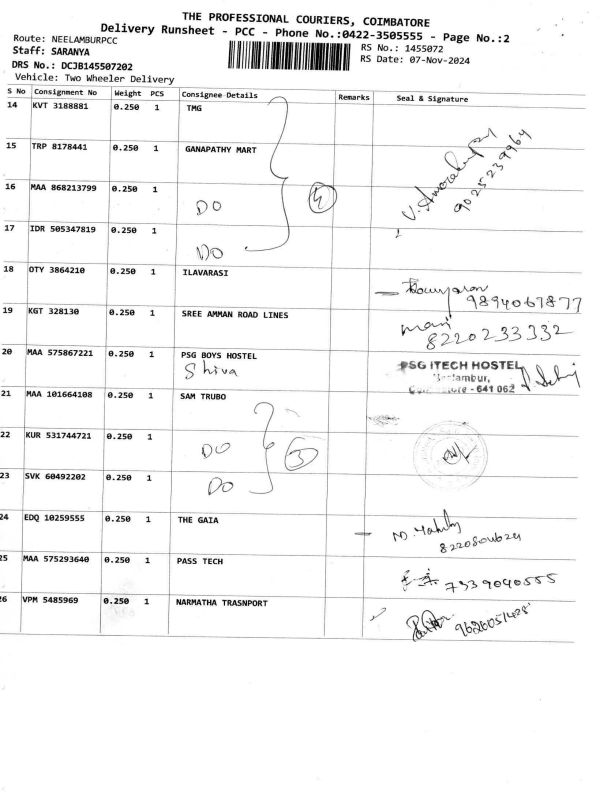 THE PROFESSIONAL COURIERS, COIMBATORE
Delivery Runsheet - PCC - Phone No.:0422-3505555 - Page No.:2
Route: NEELAMBURPCC RS No.: 1455072
Staff: SARANYA RS Date: 07-Nov-2024
DRS No.: DCJB145507202
Vehicle: Two Wheeler Delivery
S No Consignment No Weight PCS Consignee Details Remarks Seal & Signature
14 KVT 3188881 0.250 1 TMG
15 TRP 8178441 0.250 1 GANAPATHY MART
9025239964
16 MAA 868213799 0.250 1 DO 4
17 IDR 505347819 0.250 1 DO
18 OTY 3864210 0.250 1 ILAVARASI
9894067877
19 KGT 328130 0.250 1 SREE AMMAN ROAD LINES mani
8220233332
20 MAA 575867221 0.250 1 PSG BOYS HOSTEL PSG iTECH HOSTEL
Shiva
641 062
21 MAA 101664108 0.250 1 SAM TRUBO
22 KUR 531744721 0.250 1 DO 3
23 SVK 60492202 0.250 1 DO
24 EDQ 10259555 0.250 1 THE GAIA
25 MAA 575293640 0.250 1 PASS TECH 7339040555
26 VPM 5485969 0.250 1 NARMATHA TRASNPORT
9626051428